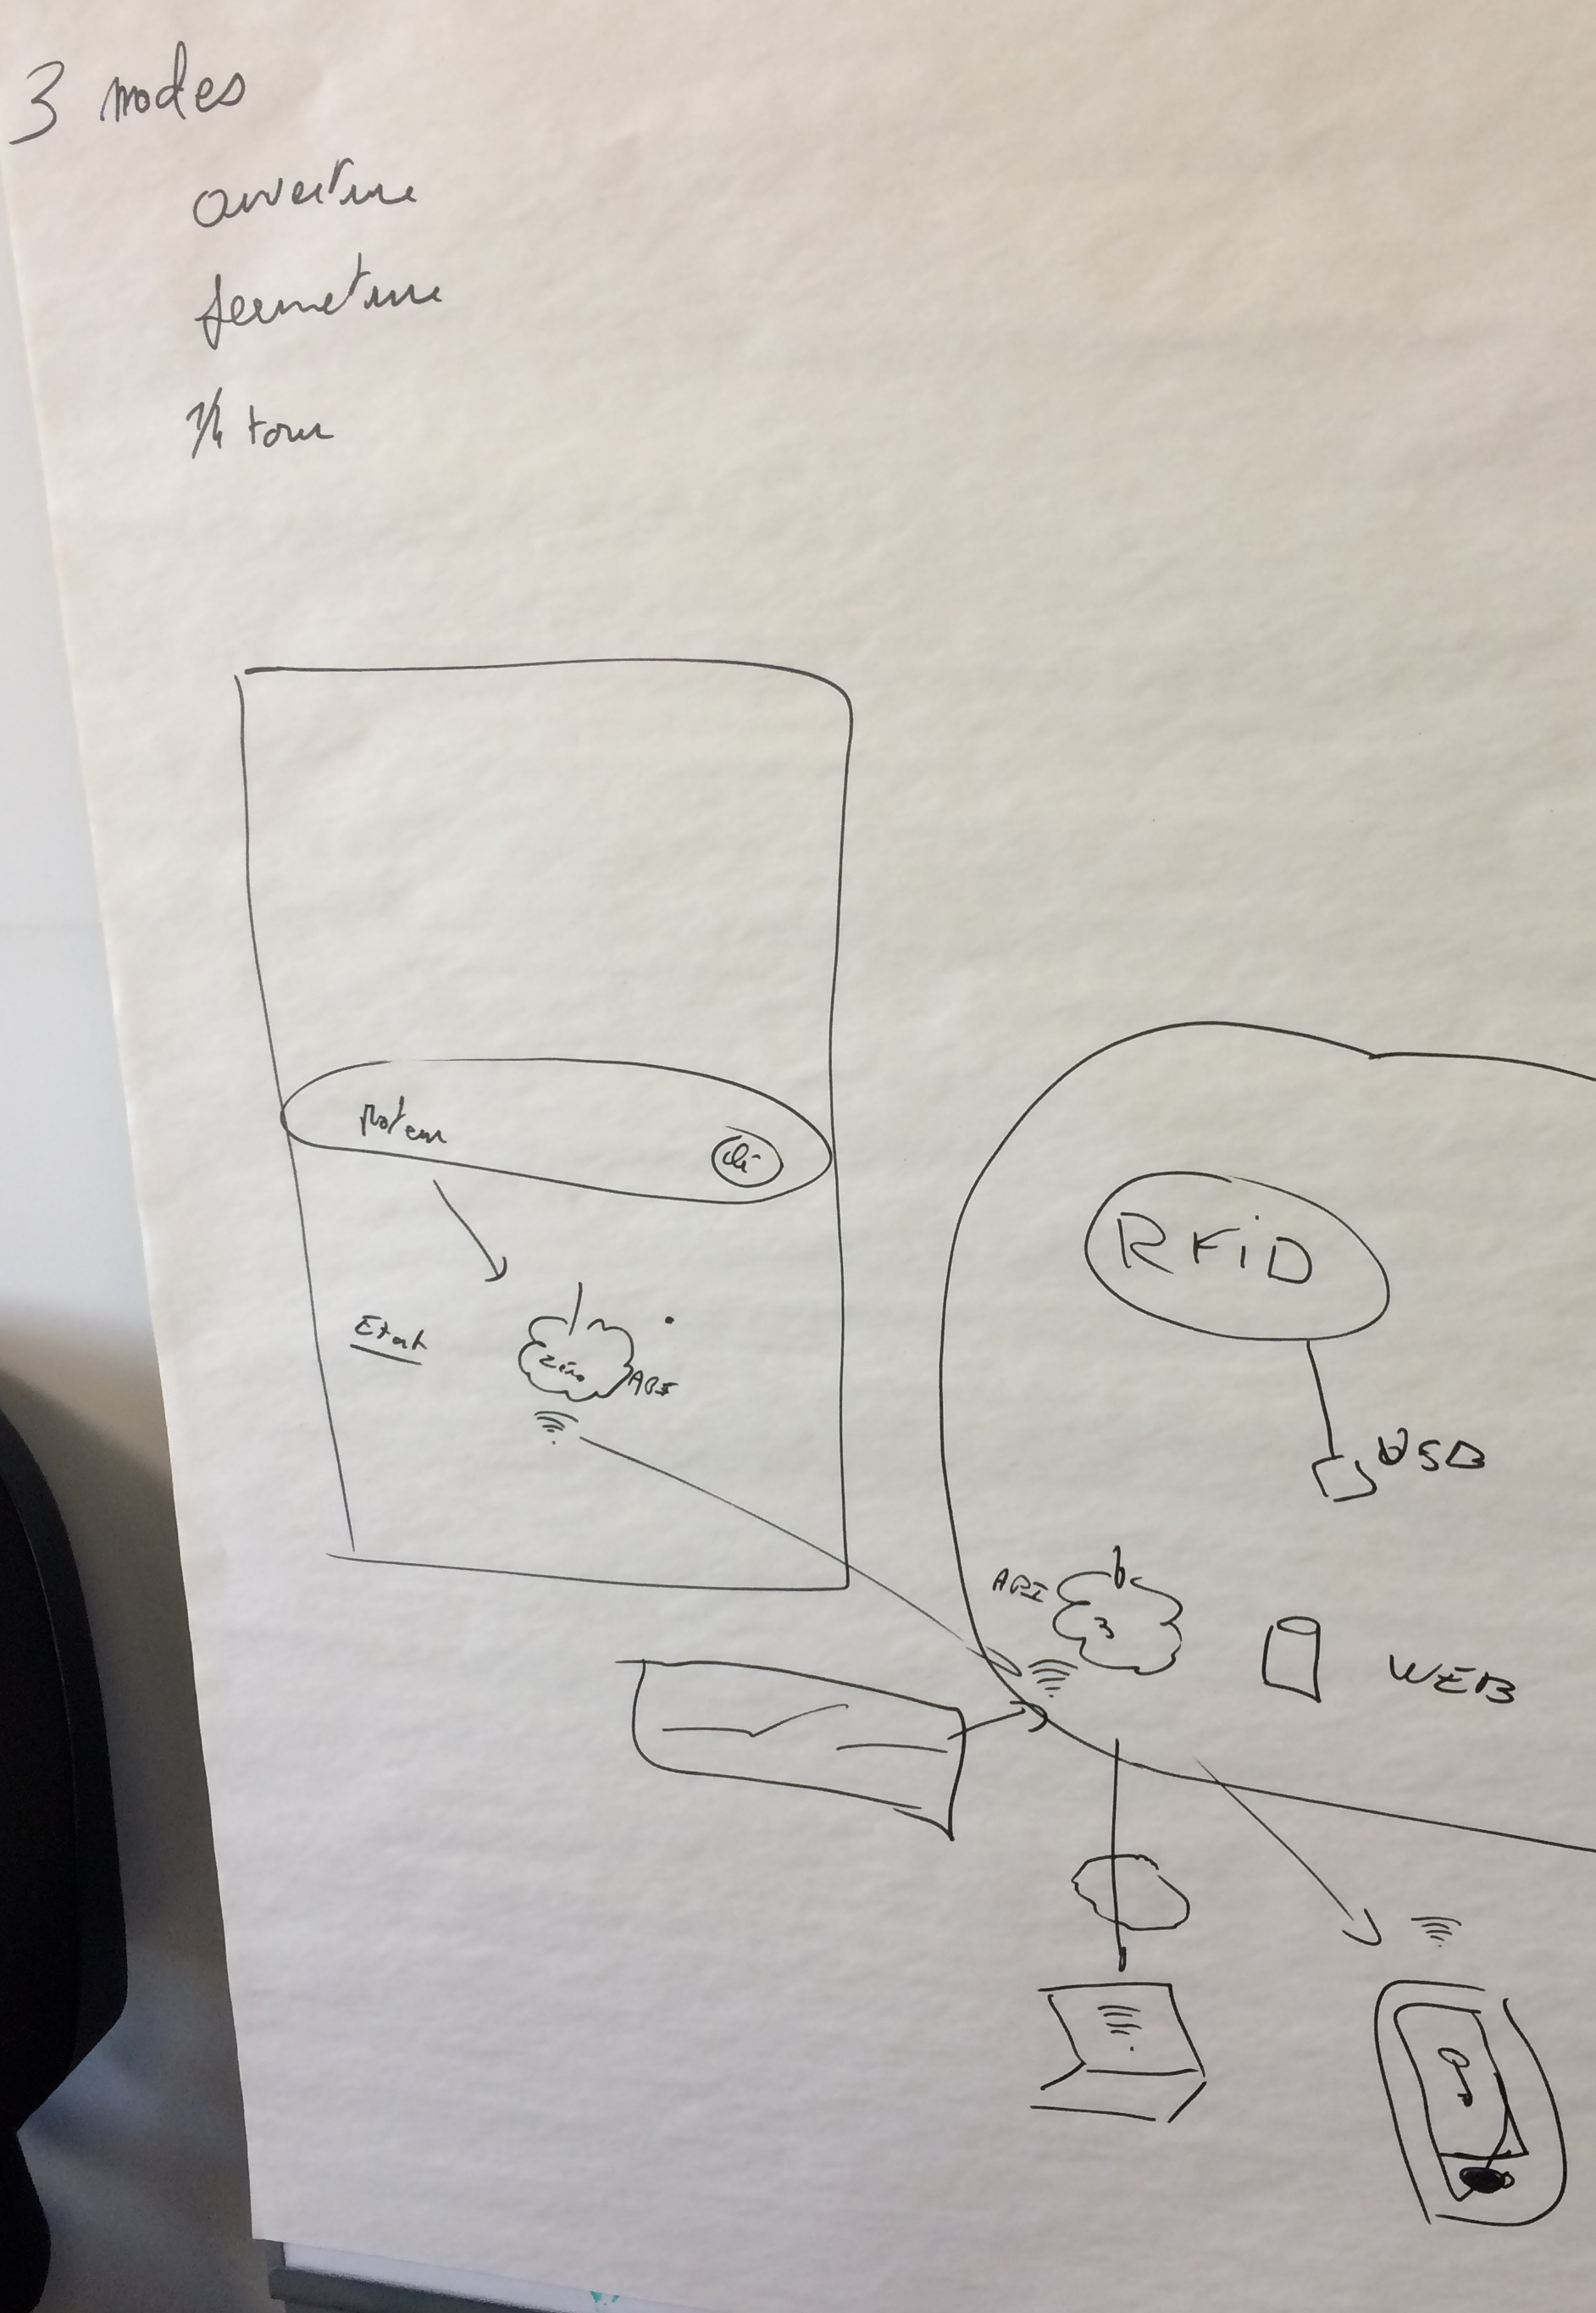 3 modes
ouverture
fermeture
1/4 tour
moteur
clé
Etat
zéro
API
RFiD
USB
API
3
WEB